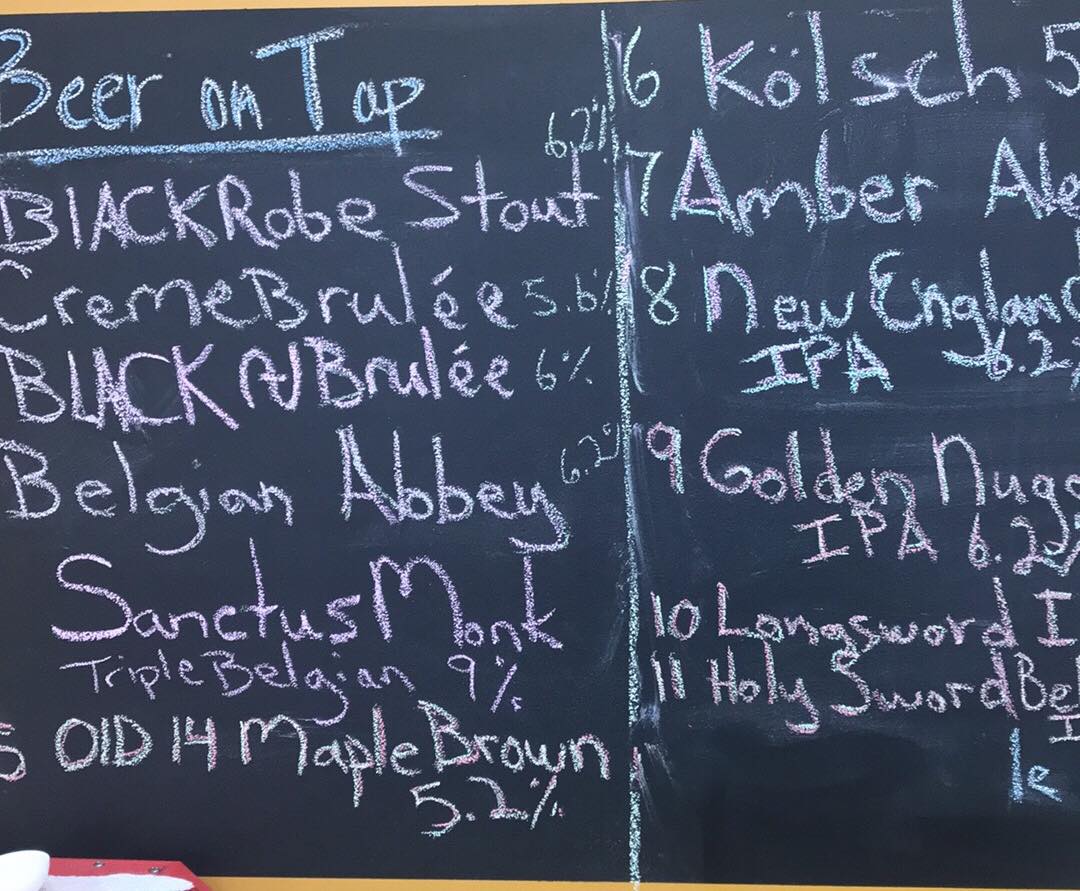 Beer on Tap
BlACKRobe Stout 6.2%
CremeBrulée 5.6%
BLACK N Brulée 6%
Belgian Abbey 6.2%
Sanctus Monk
Triple Belgian 9%
5 OlD 14 Maple Brown
5.2%
6 Kölsch 5
7 Amber Ale
8 New England
IPA 6.2%
9 Golden Nugg
IPA 6.2%
10 Longsword I
11 Holy Sword Bel
I
le